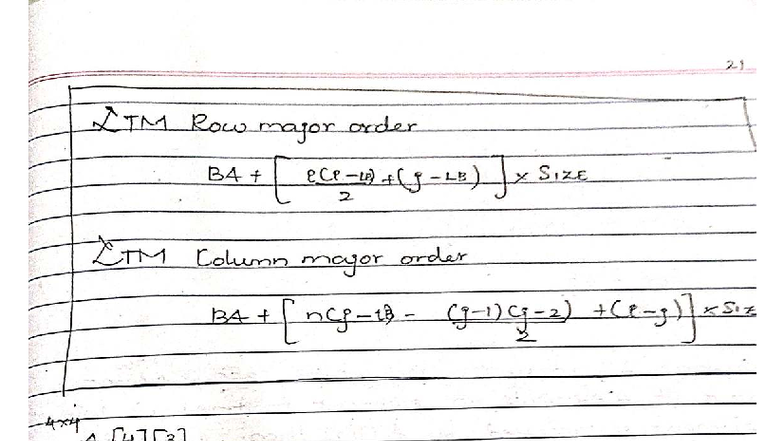 21
LTM Row major order
BA + [ i(i-LB)/2 + (j-LB) ] x SIZE
LTM Column major order
BA + [ n(j-LB - (j-1)(j-2)/2 + (i-j) ] x Siz
4x4
A [4][3]